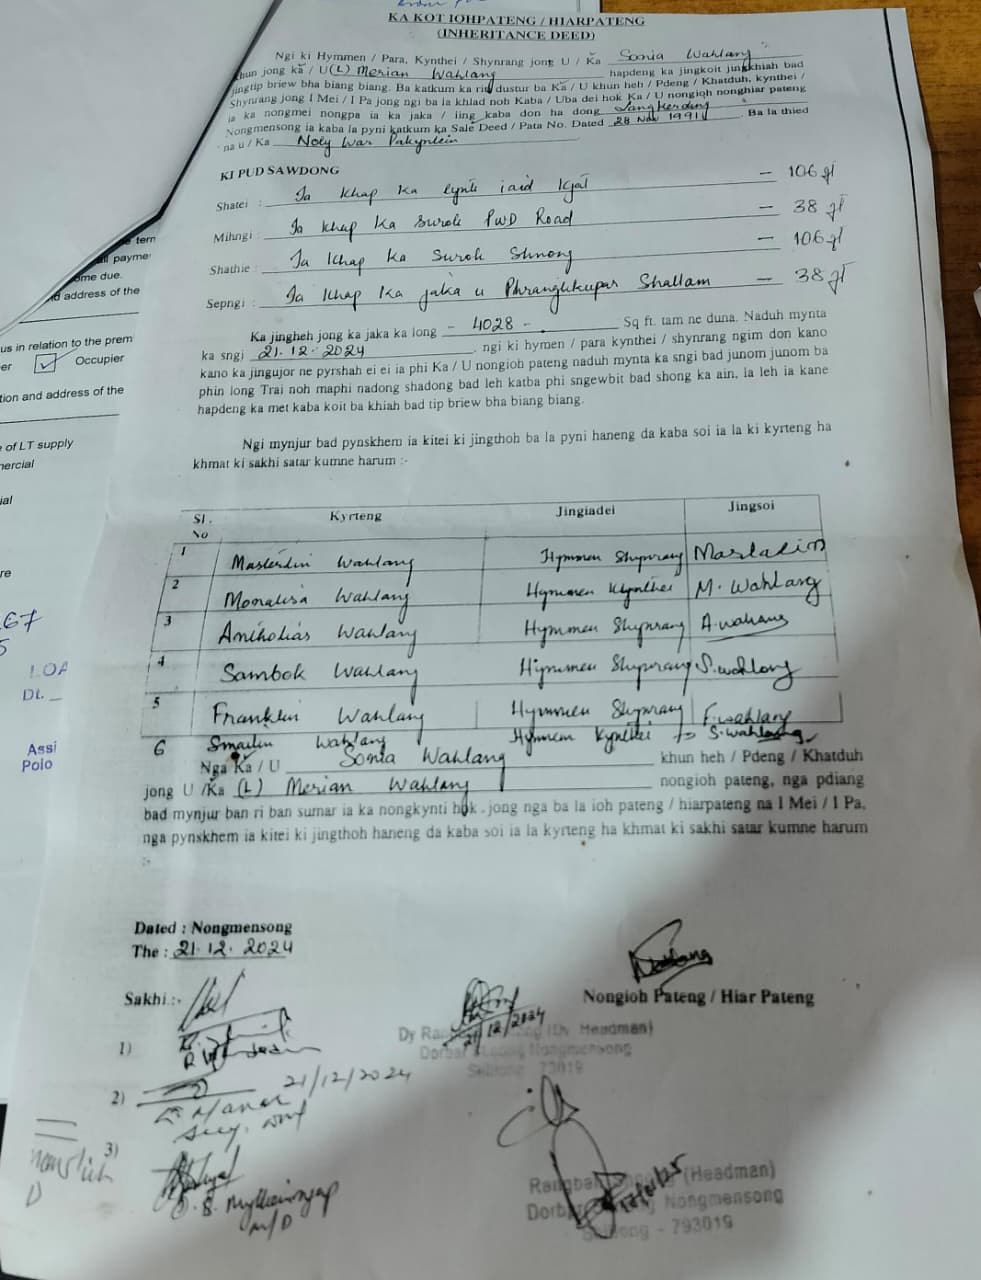 KA KOT IOHPATENG / HIARPATENG
(INHERITANCE DEED)
Ngi ki Hymmen / Para, Kynthei / Shynrang jong U / Ka Sonia Wahlang
khun jong ka / U (L) Merian Wahlang hapdeng ka jingkoit jingkhiah bad
jingtip briew bha biang biang. Ba katkum ka riti dustur ba Ka / U khun heh / Pdeng / Khatduh, kynthei /
Shynrang jong I Mei / I Pa jong ngi ba la khlad noh Kaba / Uba dei hok Ka / U nongioh nonghiar pateng
ia ka nongmei nongpa ia ka jaka / iing kaba don ha dong Langkerding
Nongmensong ia kaba la pyni katkum ka Sale Deed / Pata No. Dated 28 Nov 1991 . Ba la thied
na u / Ka Noly War Pakyntein
KI PUD SAWDONG
Shatei : Ia khap ka lynti iaid kjat - 106 ft
Mihngi : Ia khap ka surok PWD Road - 38 ft
Shathie : Ia khap ka Surok Shnong - 106 ft
Sepngi : Ia khap ka jaka u Phrangkupar Shallam - 38 ft
Ka jingheh jong ka jaka ka long - 4028 - Sq ft. tam ne duna. Naduh mynta
ka sngi 21.12.2024 , ngi ki hymen / para kynthei / shynrang ngim don kano
kano ka jingujor ne pyrshah ei ei ia phi Ka / U nongioh pateng naduh mynta ka sngi bad junom junom ba
phin long Trai noh maphi nadong shadong bad leh katba phi sngewbit bad shong ka ain, la leh ia kane
hapdeng ka met kaba koit ba khiah bad tip briew bha biang biang.
Ngi mynjur bad pynskhem ia kitei ki jingthoh ba la pyni haneng da kaba soi ia la ki kyrteng ha
khmat ki sakhi satar kumne harum :-
Sl. No Kyrteng Jingiadei Jingsoi
1 Masterlin Wahlang Hymmen Shynrang Mastarlin
2 Monalisa Wahlang Hymmen Kynthei M. Wahlang
3 Aniholias Wahlang Hymmen Shynrang A.wahlang
4 Sambok Wahlang Hymmen Shynrang S.wahlang
5 Franklin Wahlang Hymmen Shynrang F.wahlang
6 Smailin Wahlang Hymmen Kynthei S.wahlang
Nga Ka / U Sonia Wahlang khun heh / Pdeng / Khatduh
jong U /Ka (L) Merian Wahlang nongioh pateng, nga pdiang
bad mynjur ban ri ban sumar ia ka nongkynti hok jong nga ba la ioh pateng / hiarpateng na I Mei / I Pa,
nga pynskhem ia kitei ki jingthoh haneng da kaba soi ia la kyrteng ha khmat ki sakhi satar kumne harum
:-
Dated : Nongmensong
The : 21.12.2024
Sakhi :-
Nongioh Pateng / Hiar Pateng
21/12/2024
Dy Headman)
Nongmensong
1)
2) 21/12/2024
Secy.
3)
(Headman)
Nongmensong
- 793019
tern
payme
ome due.
d address of the
us in relation to the prem
er Occupier
tion and address of the
of LT supply
mercial
ial
re
67
5
LOA
Dt.
Assi
Polo